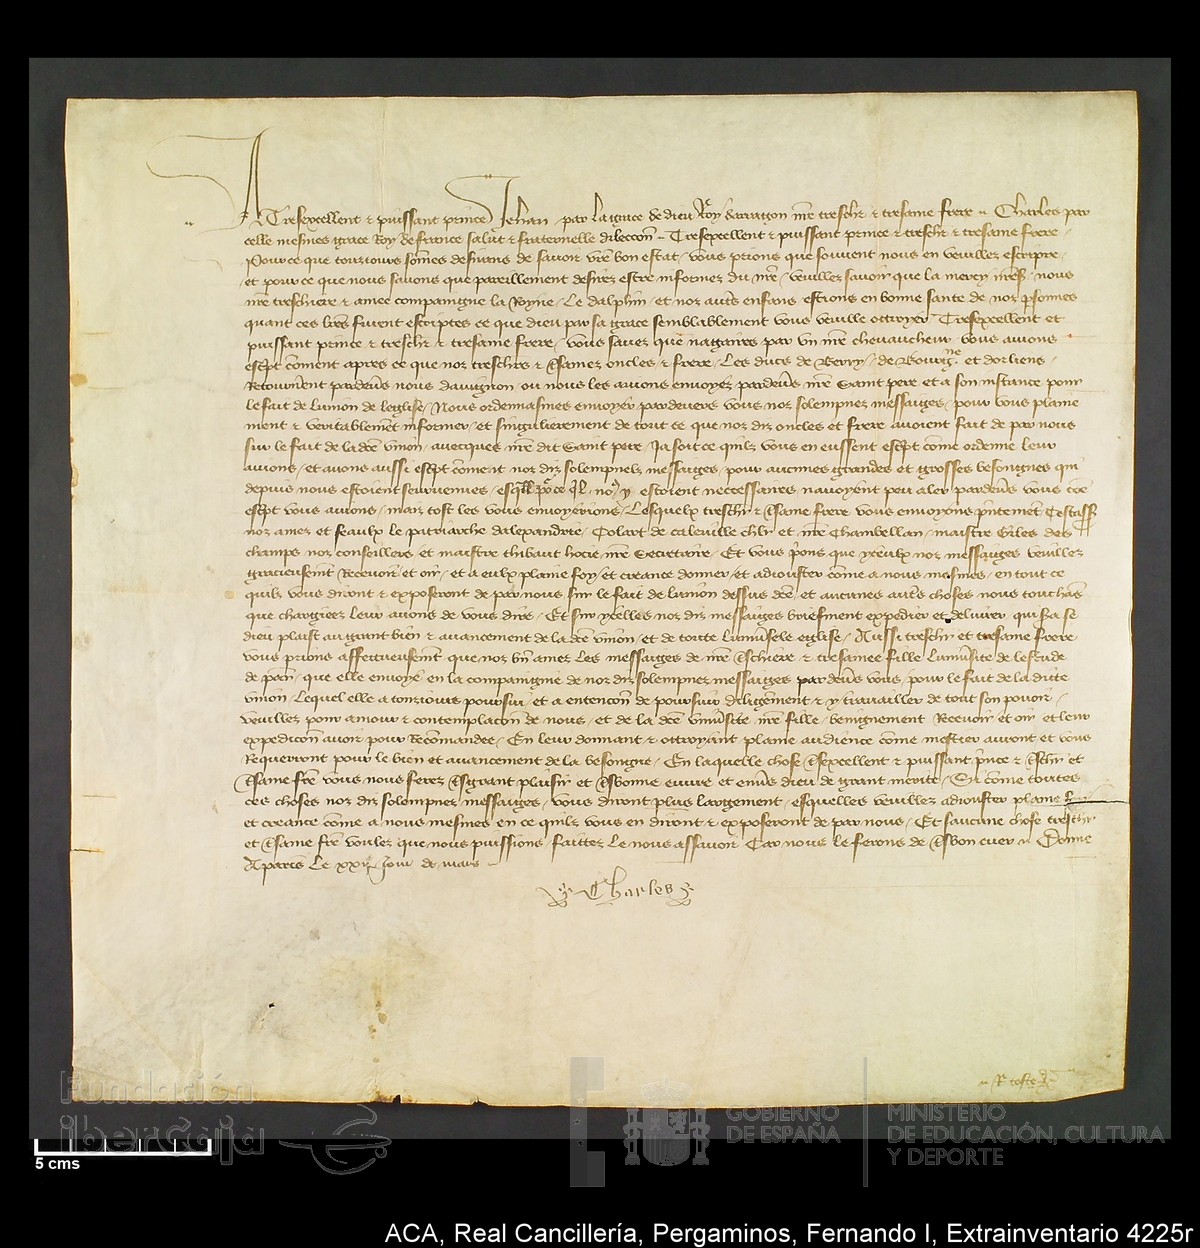 A Tresexcellent & puissant prince Jehan par la grace de dieu Roy darragon nre treschr & tresame frere Charles par
celle mesmes grace Roy de france salut & fraternelle dileccon Tresexcellent & puissant prince & treschr & tresame frere
Pour ce que tousiours somes desirans de savoir vre bon estat vous prions que souvent nous en veuillez escripre
et pour ce que nous savons que pareillement desirez estre informez du nre veuillez savoir que la mercy nres nous
nre treschiere & amee compaingne la Royne Le dalphin et noz aut's enfans estions en bonne sante de noz psonnes
quant ces lres furent escriptes ce que dieu par sa grace semblablement vous veuille ottroyer Tresexcellent et
puissant prince & treschr & tresame frere vous savez que nagaires par un nre chevaucheur vous avions
escpt coment apres ce que noz treschrs & tsamez oncles & frere Les ducs de Berry de Bourgne et dorliens
Retournerent pardevs nous davignon ou nous les avions envoyez pardevs nre saint pere et a son instance pour
le fait de lunion de leglise Nous ordenasmes envoyer pardevers vous noz solempnez messaiges pour vous plaine
ment & veritablemet informer et singulierement de tout ce que noz diz oncles et frere avoient fait de par nous
sur le fait de la dce union avecques nre dit saint pere Ja soit ce quilz vous en eussent escpt come ordene leur
avions et avons aussi escpt coment noz diz solempnelz messaiges pour aucunes grandes et grosses besoingnes qui
depuis nous estoient seurvenues esquelles pour ce quil nous y estoient neccessaires navoyent peu aler pardevs vous
escpt vous avions mais tost les vous envoyerions Lesquelx treschr & tsame frere vous envoyons pntemet Cestass
noz amez et feaulx le patriarche dalexandrie Colart de caleville chlr et nre Chambellan maistre Giles des
champs noz conseillers et maistre thibaut hocie nre Secretaire Et vous pons que yceulx noz messaiges veuillez
gracieusemnt Recevoir et oir et a eulx plaine foy et creance donner et adiouster come a nous mesmes en tout ce
quilz vous diront & exposeront de par nous sur le fait de lunion dessus dce et aucunes aut's choses nous touchans
que chargiees leur avons de vous dire Et sur ycelles noz diz messaiges briefment expedier et delivrer qui sa se
dieu plaist au grant bien & avancement de la dce union et de toute luniversele eglise Aussi treschr et tresame frere
vous prions affectueusemt que noz bn amez Les messaiges de nre tschiere & tresamee fille Luniv'site de lestude
de paris que elle envoye en la compaingnie de noz diz solempnez messaiges pardevs vous pour le fait de la dicte
union Lequel elle a tousiours poursui et a entencon de poursuir diligement & y travailler de tout son povoir
veuillez pour amour & contemplacon de nous et de la dce univ'site nre fille benignement Recevoir et oir et leur
expedicon avoir pour Recomandee En leur donnant & ottroyant plaine audience come mestier auront et vous
Requerront pour le bien et avancement de la besoingne En laquelle chose tsexcellent & puissant pnce & tschr et
tsame frere vous nous ferez tsgrant plaisir et tsbonne euvre et envs dieu de grant merite Si come toutes
ces choses noz diz solempnez messaiges vous diront plus largement esquelles veuillez adiouster plaine foy
et creance come a nous mesmes en ce quilz vous en diront & exposeront de par nous Et saucune chose treschr
et tsame frere voulez que nous puissions faittez Le nous assavoir Car nous le ferons de tsbon cuer Donne
A paris Le xxije Jour de mars
Charles
5 cms
Fundación
iberCaja
GOBIERNO
DE ESPAÑA
MINISTERIO
DE EDUCACIÓN, CULTURA
Y DEPORTE
ACA, Real Cancillería, Pergaminos, Fernando I, Extrainventario 4225r